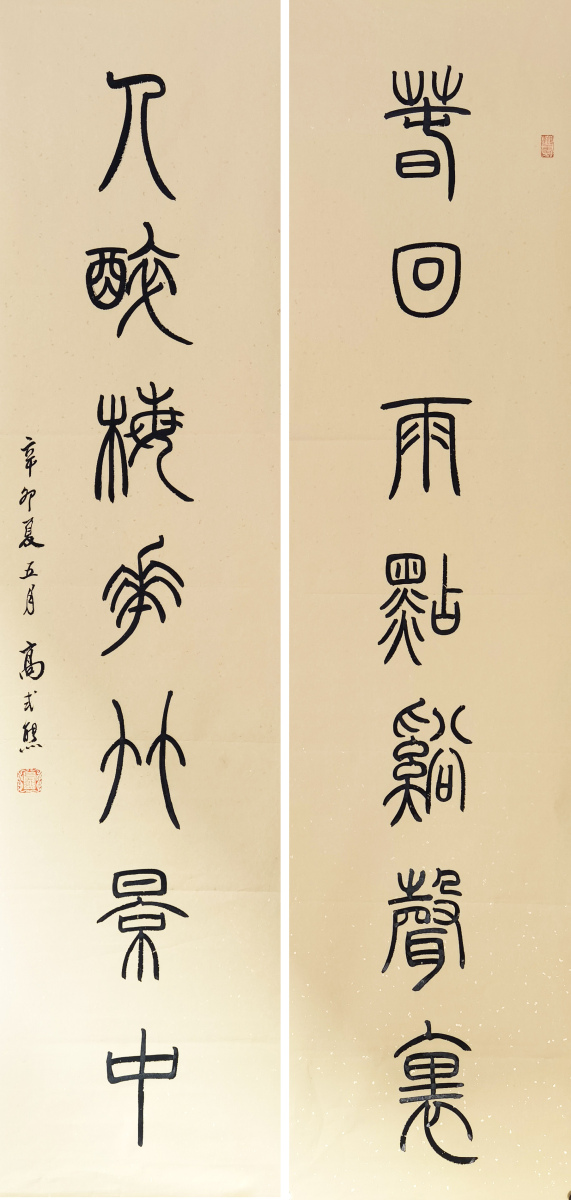 春回雨點谿聲裏
人醉梅華竹景中
辛卯夏五月 高式熊